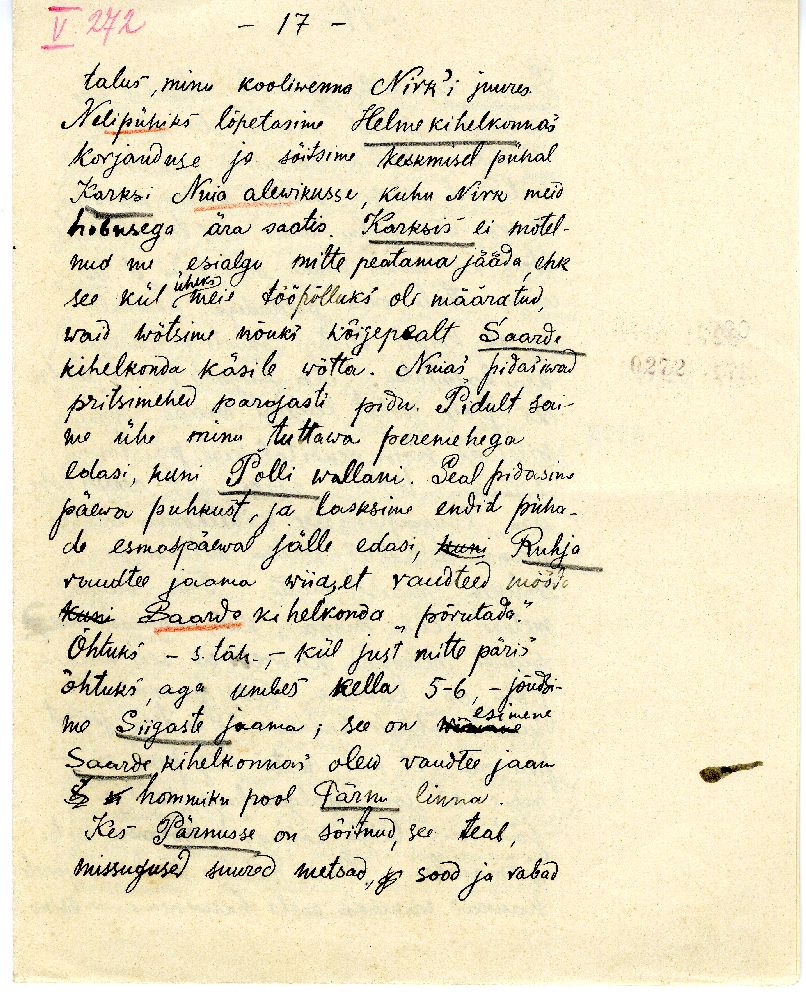 V 272
- 17 -
talus, minu kooliwenna Nirk'i juures.
Nelipühiks lõpetasime Helme kihelkonnas
korjanduse ja sõitsime keskmisel pühal
Karksi Nuia alewikusse, kuhu Nirk meid
hobusega ära saatis. Karksis ei mõtel-
nud me esialgu mitte peatama jääda, ehk
see kül üheks meie tööpõlluks oli määratud,
waid wõtsime nõuks kõigepealt Saarde
kihelkonda käsile wõtta. Nuias pidasiwad
pritsimehed parajasti pidu. Pidult sai-
me ühe minu tuttawa peremehega
edasi, kuni Põlli wallani. Seal pidasime
päewa puhkust, ja lasksime endid püha-
de esmaspäewal jälle edasi, kuni Ruhja
raudtee jaama wiia, et raudteed mööda
kuni Saarde kihelkonda „põrutada".
Õhtuks - s. täh. - kül just mitte päris
õhtuks, aga umbes kella 5-6, - jõudsi-
me Siigaste jaama; see on esimene
Saarde kihelkonnas olew raudtee jaam
hommiku pool Pärnu linna.
Kes Pärnusse on sõitnud, see teab,
missugused suured metsad, sood ja rabad